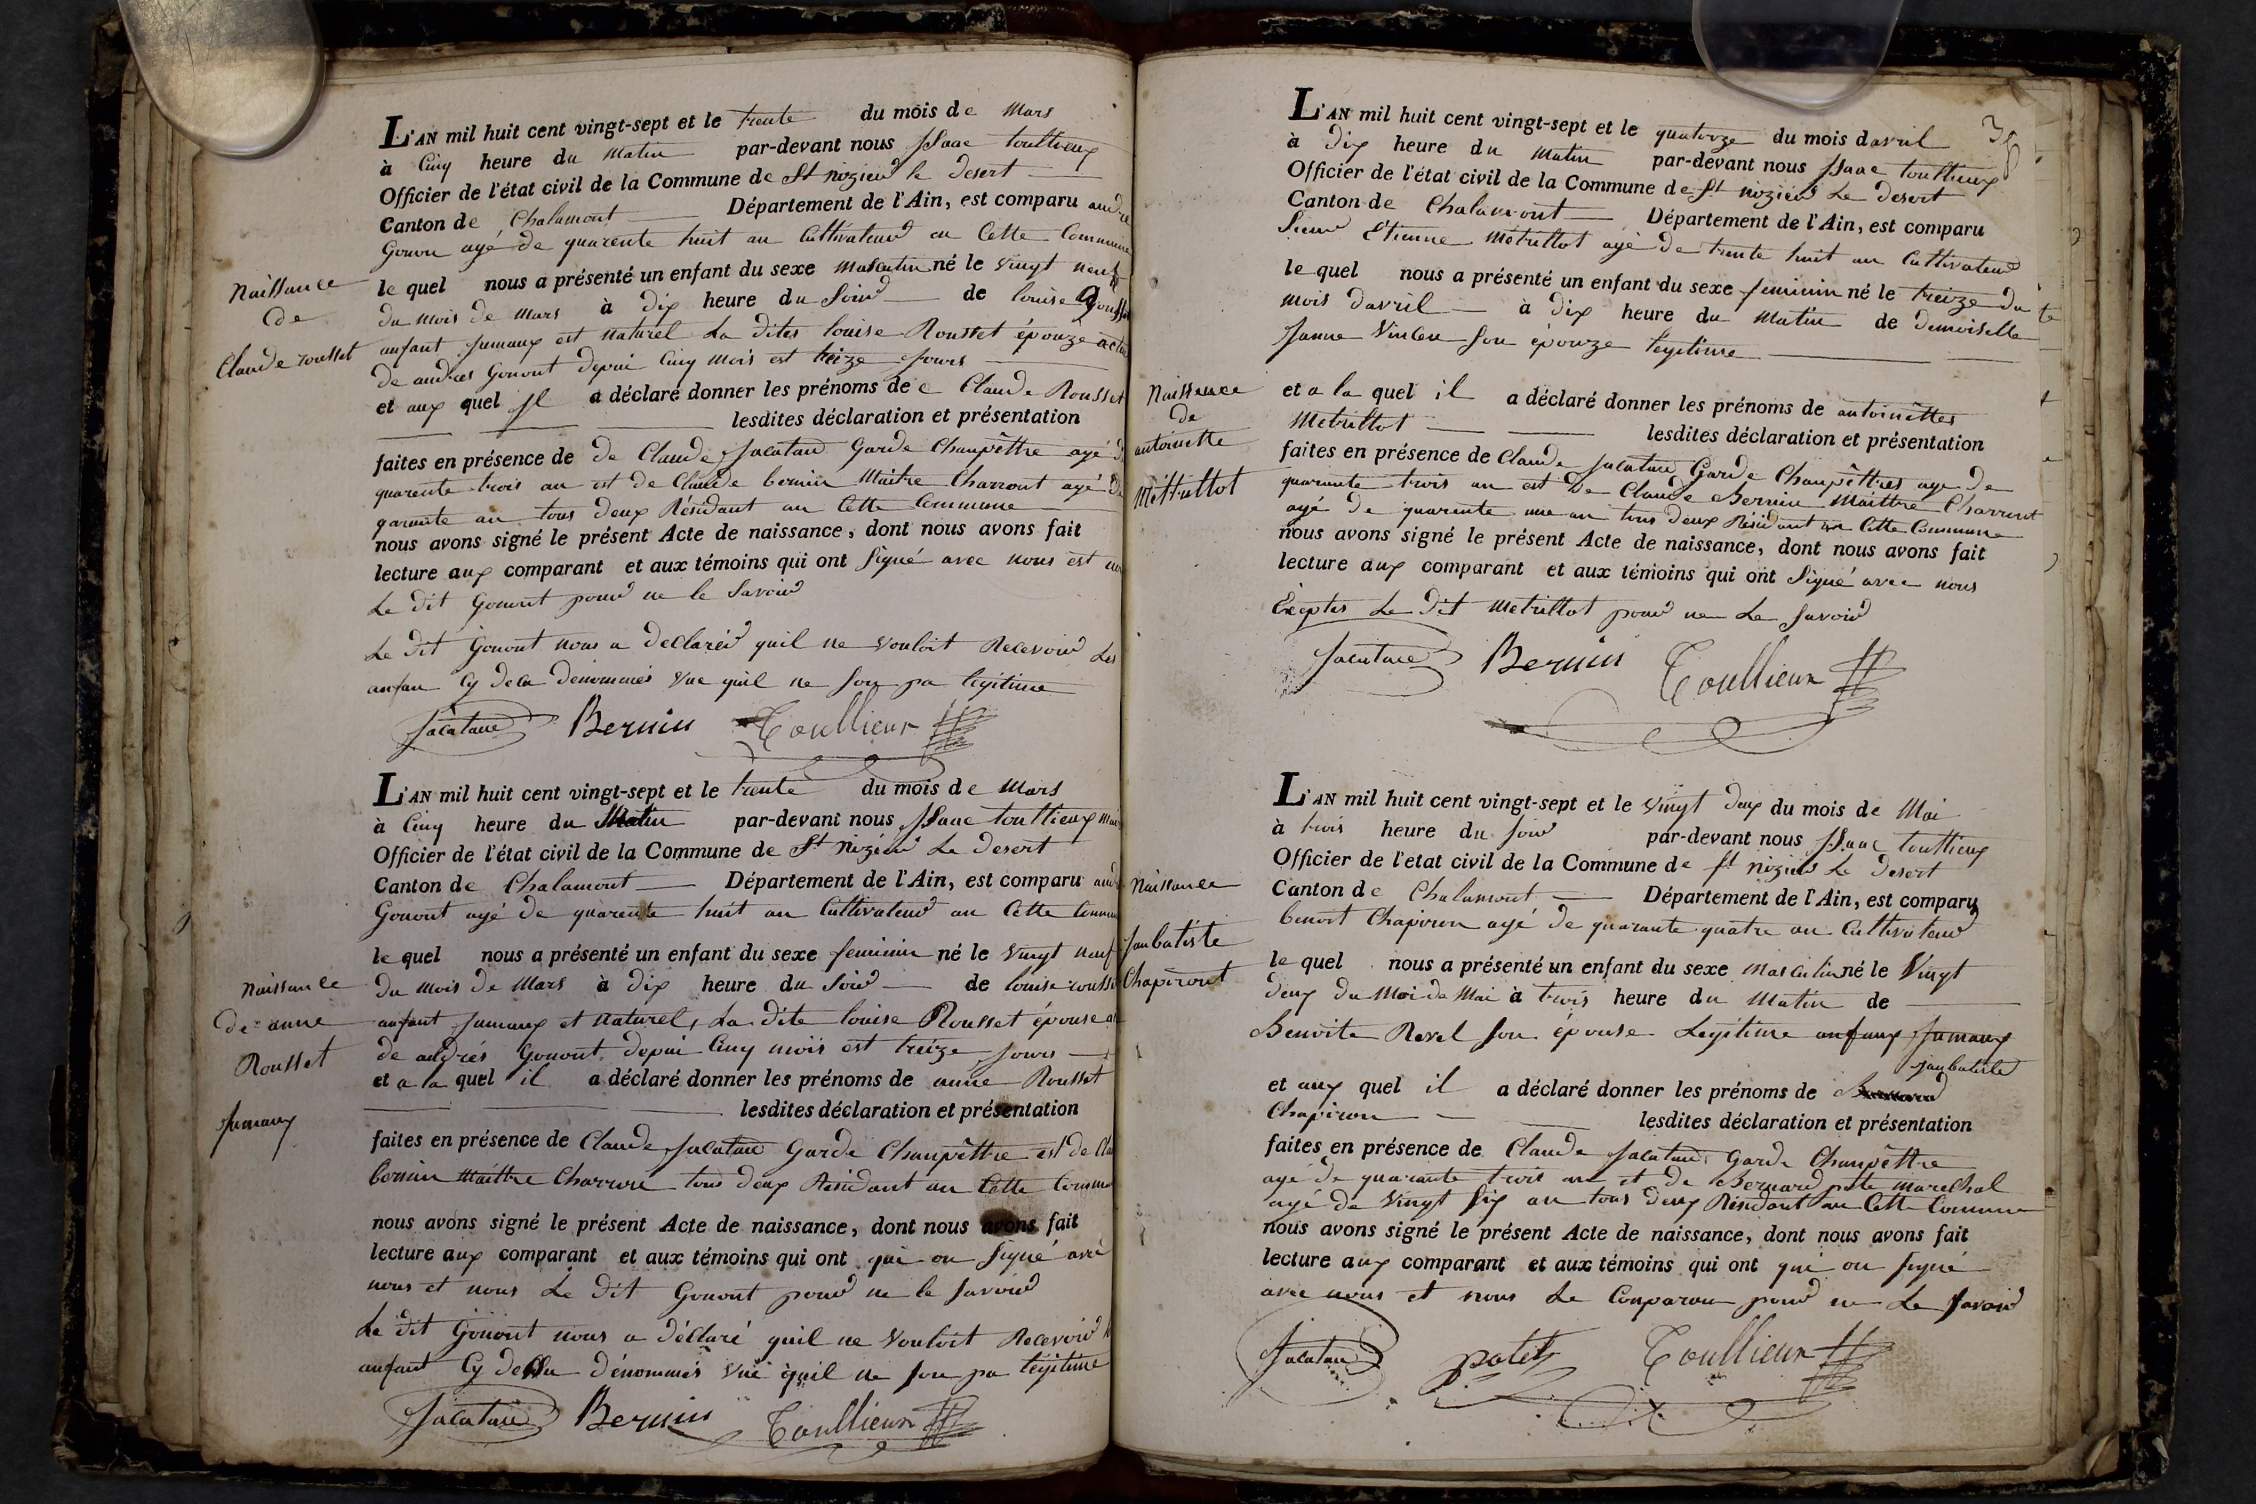 L'AN mil huit cent vingt-sept et le trente du mois de Mars
à Cinq heure du Matin par-devant nous Isaac toullieux
Officier de l'état civil de la Commune de St nizier le desert
Canton de Chalamont Département de l'Ain, est comparu
Gonon agé de quarente huit an Cultivateur en Cette Commune
le quel nous a présenté un enfant du sexe Masculin né le Vingt neuf
du mois de Mars à dix heure du Soir de louise
anfant Jumaux est naturel La dites louise Rousset épouze
de andres Gonont depui Cinq mois est treize Jours
et aux quel Il a déclaré donner les prénoms de Claude Rousset
lesdites déclaration et présentation
faites en présence de de Claude Jacataire Garde Champêttre agé
quarente trois an est de Claude bernin Maitre Charront agé
garante an tous deux Résidant an Cette Commune
nous avons signé le présent Acte de naissance, dont nous avons fait
lecture aux comparant et aux témoins qui ont Signé avec nous est
Le dit Gonont pour ne le Savoir
Le dit Gonont nous a declarér quil ne vouloit Recevoir Les
anfan Cy dela dénommés Vue quil ne Son pa legitime
Jacataire Bernin Toullieux
Naissance
de
Claude rousset
L'AN mil huit cent vingt-sept et le trente du mois de Mars
à Cinq heure du Matin par-devant nous Isaac toullieux
Officier de l'état civil de la Commune de St nizier Le desert
Canton de Chalamont Département de l'Ain, est comparu
Gonont agé de quarente huit an Cultivateur an Cette
le quel nous a présenté un enfant du sexe feminin né le Vingt neuf
du mois de Mars à dix heure du Soir de louise
anfant Jumaux et naturel, La dite louise Rousset épouse
de andrés Gonont depui Cinq mois est treize Jours
et a la quel il a déclaré donner les prénoms de anne Rousset
lesdites déclaration et présentation
faites en présence de Claude Jacataire Garde Champêttre est de
bernin Maittre Charron tous deux Résidant an Cette
nous avons signé le présent Acte de naissance, dont nous avons fait
lecture aux comparant et aux témoins qui ont qui on Signé avec
nous et nous Le dit Gonont pour ne le Savoir
Le dit Gonont nous a déclaré quil ne Vouloit Recevoir
anfant Cy dessu dénommés Vue quil ne Son pa legitime
Jacataire Bernin Toullieux
Naissance
de anne
Rousset
Jumaux
L'AN mil huit cent vingt-sept et le quatorze du mois davril
à dix heure du Matin par-devant nous Isaac toullieux
Officier de l'état civil de la Commune de St nizier Le desert
Canton de Chalamont Département de l'Ain, est comparu
Sieur Etienne Metrillot agé de trente huit an Cultivateur
le quel nous a présenté un enfant du sexe feminin né le treize du
mois davril à dix heure du Matin de demoiselle
Janne Son épouze legitime
et a la quel il a déclaré donner les prénoms de antoinettes
Metrillot lesdites déclaration et présentation
faites en présence de Claude Jacataire Garde Champêttres age de
quarante trois an est De Claude Bernin Maittre Charront
agé de quarente une an tous deux Résidant an Cette Commune
nous avons signé le présent Acte de naissance, dont nous avons fait
lecture aux comparant et aux témoins qui ont Signé avec nous
Exceptes Le dit Metrillot pour ne Le Savoir
Jacataire Bernin Toullieux
Naissence
de
antoinette
Mettrillot
L'AN mil huit cent vingt-sept et le Vingt deux du mois de Mai
à trois heure du Soir par-devant nous Isaac toullieux
Officier de l'etat civil de la Commune de St nizier Le Desert
Canton de Chalamont Département de l'Ain, est comparu
benoit Chapiron agé de quarante quatre an Cultivateur
le quel nous a présenté un enfant du sexe Masculin né le Vingt
deux du Moi de Mai à trois heure du Matin de
Benoite Revel Son épouse Legitime anfanx Jumaux
Janbatiste
et aux quel il a déclaré donner les prénoms de
Chapiron lesdites déclaration et présentation
faites en présence de Claude Jacataire Garde Champêttre
agé de quarante trois an et de Bernard patte Marechal
agé de Vingt Six an tous deux Résidant an Cette Commune
nous avons signé le présent Acte de naissance, dont nous avons fait
lecture aux comparant et aux témoins qui ont qui on Signé
avec nous et nous Le Conparan pour ne Le Savoir
Jacataire Toullieux
Naissance
Janbatiste
Chapiront